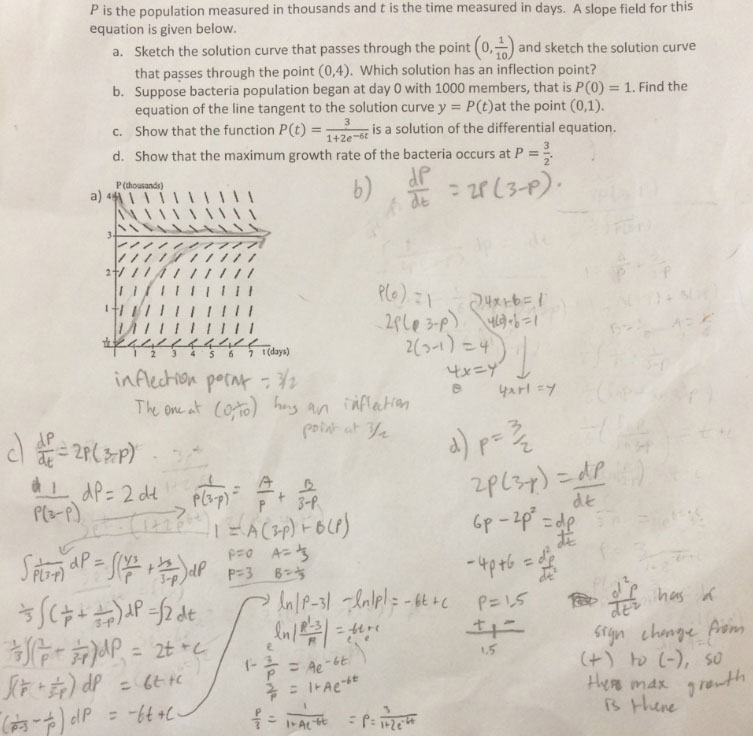 P is the population measured in thousands and t is the time measured in days. A slope field for this
equation is given below.
a. Sketch the solution curve that passes through the point (0, 1/10) and sketch the solution curve
that passes through the point (0,4). Which solution has an inflection point?
b. Suppose bacteria population began at day 0 with 1000 members, that is P(0) = 1. Find the
equation of the line tangent to the solution curve y = P(t)at the point (0,1).
c. Show that the function P(t) = 3/(1+2e^-6t) is a solution of the differential equation.
d. Show that the maximum growth rate of the bacteria occurs at P = 3/2.
a)
P (thousands)
4
3
2
1
1 2 3 4 5 6 7 t (days)
inflection point = 3/2
The one at (0, 1/10) has an inflection
point at 3/2
b) dP/dt = 2P(3-P).
P(0) = 1
2P( 3-P)
2(3-1) = 4
4x = y
4x+b=1
4(0)+b=1
4x+1 = y
c) dP/dt = 2P(3-P)
1/P(3-P) dP = 2 dt
1/P(3-P) = A/P + B/3-P
1 = A(3-P) + B(P)
P=0 A=1/3
P=3 B=1/3
∫ 1/P(3-P) dP = ∫(1/3/P + 1/3/3-P) dP
1/3 ∫(1/P + 1/3-P) dP = ∫2 dt
1/3 ∫(1/P + 1/3-P) dP = 2t + C
∫(1/P + 1/3-P) dP = 6t + C
(1/P-3 - 1/P) dP = -6t + C
ln|P-3| - ln|P| = -6t + C
ln|P-3/P| = -6t+C
1 - 3/P = Ae^-6t
3/P = 1+Ae^-6t
P/3 = 1/1+Ae^-6t = P = 3/1+2e^-6t
d) P = 3/2
2P(3-P) = dP/dt
6P - 2P² = dP/dt
-4P+6 = d²P/dt²
P = 1.5
+ | -
1.5
d²P/dt² has a
sign change from
(+) to (-), so
max growth
is there